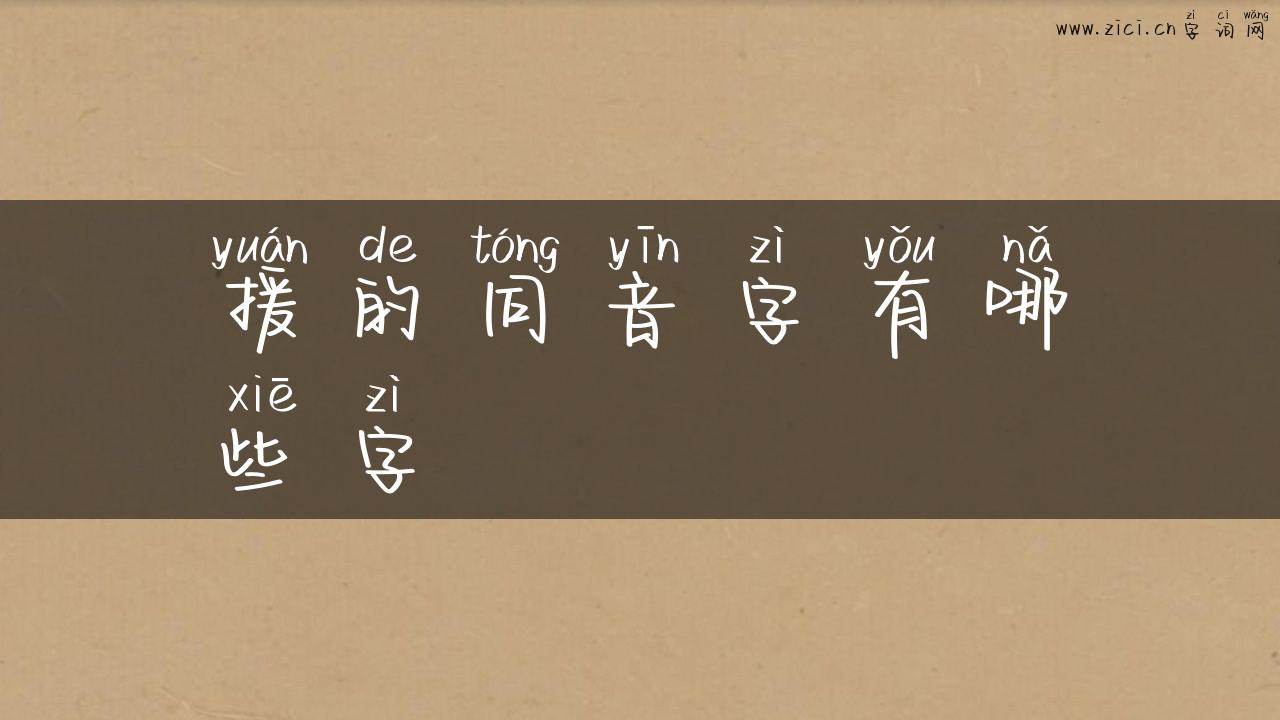 zì cí wǎng
www.zici.cn 字 词 网
yuán de tóng yīn zì yǒu nǎ
援 的 同 音 字 有 哪
xiē zì
些 字